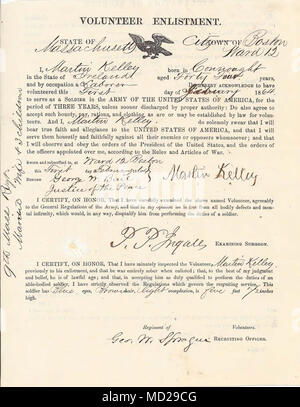 VOLUNTEER ENLISTMENT.
STATE OF Massachusetts City TOWN OF Boston
Ward 12
I, Martin Kelley born in Connaught
in the State of Ireland aged Forty Four years,
and by occupation a Laborer DO HEREBY ACKNOWLEDGE to have
volunteered this First day of February 1864
to serve as a SOLDIER in the ARMY OF THE UNITED STATES OF AMERICA, for the
period of THREE YEARS, unless sooner discharged by proper authority: Do also agree to
accept such bounty, pay, rations, and clothing, as are or may be established by law for volun-
teers. And I, Martin Kelley do solemnly swear that I will
bear true faith and allegiance to the UNITED STATES OF AMERICA, and that I will
serve them honestly and faithfully against all their enemies or opposers whomsoever; and
that I will observe and obey the orders of the President of the United States, and the orders of
the officers appointed over me, according to the Rules and Articles of War.
Sworn and subscribed to, at Ward 12 Boston
this First day of February 1864
BEFORE George W.
Justice of the Peace
Martin Kelley
I CERTIFY, ON HONOR, That I have carefully examined the above named Volunteer, agreeably
to the General Regulations of the Army, and that in my opinion he is free from all bodily defects and men-
tal infirmity, which would, in any way, disqualify him from performing the duties of a soldier.
EXAMINING SURGEON.
I CERTIFY, ON HONOR, That I have minutely inspected the Volunteer, Martin Kelley
previously to his enlistment, and that he was entirely sober when enlisted; that, to the best of my judgment
and belief, he is of lawful age; and that, in accepting him as duly qualified to perform the duties of an
able-bodied soldier, I have strictly observed the Regulations which govern the recruiting service. This
soldier has Blue eyes, Brown hair, light complexion, is five feet 7 inches
high.
Regiment of Volunteers.
Geo. W. Sprague RECRUITING OFFICER.
Married Wife &
alamy
Image ID: MD29CG
www.alamy.com